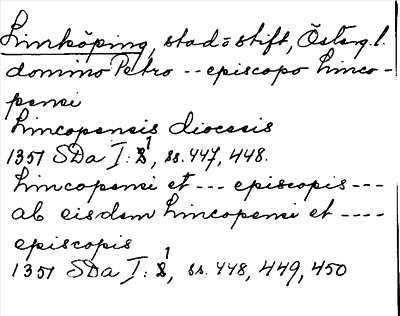 Linköping, stad o stift, Österg. l.
domino Petro -- episcopo Linco-
pensi
Lincopensis diocesis
1351 SDa I: 1, ss. 447, 448.
Lincopensi et --- episcopis ---
ab eisdem Lincopensi et ----
episcopis
1351 SDa I: 1, ss. 448, 449, 450